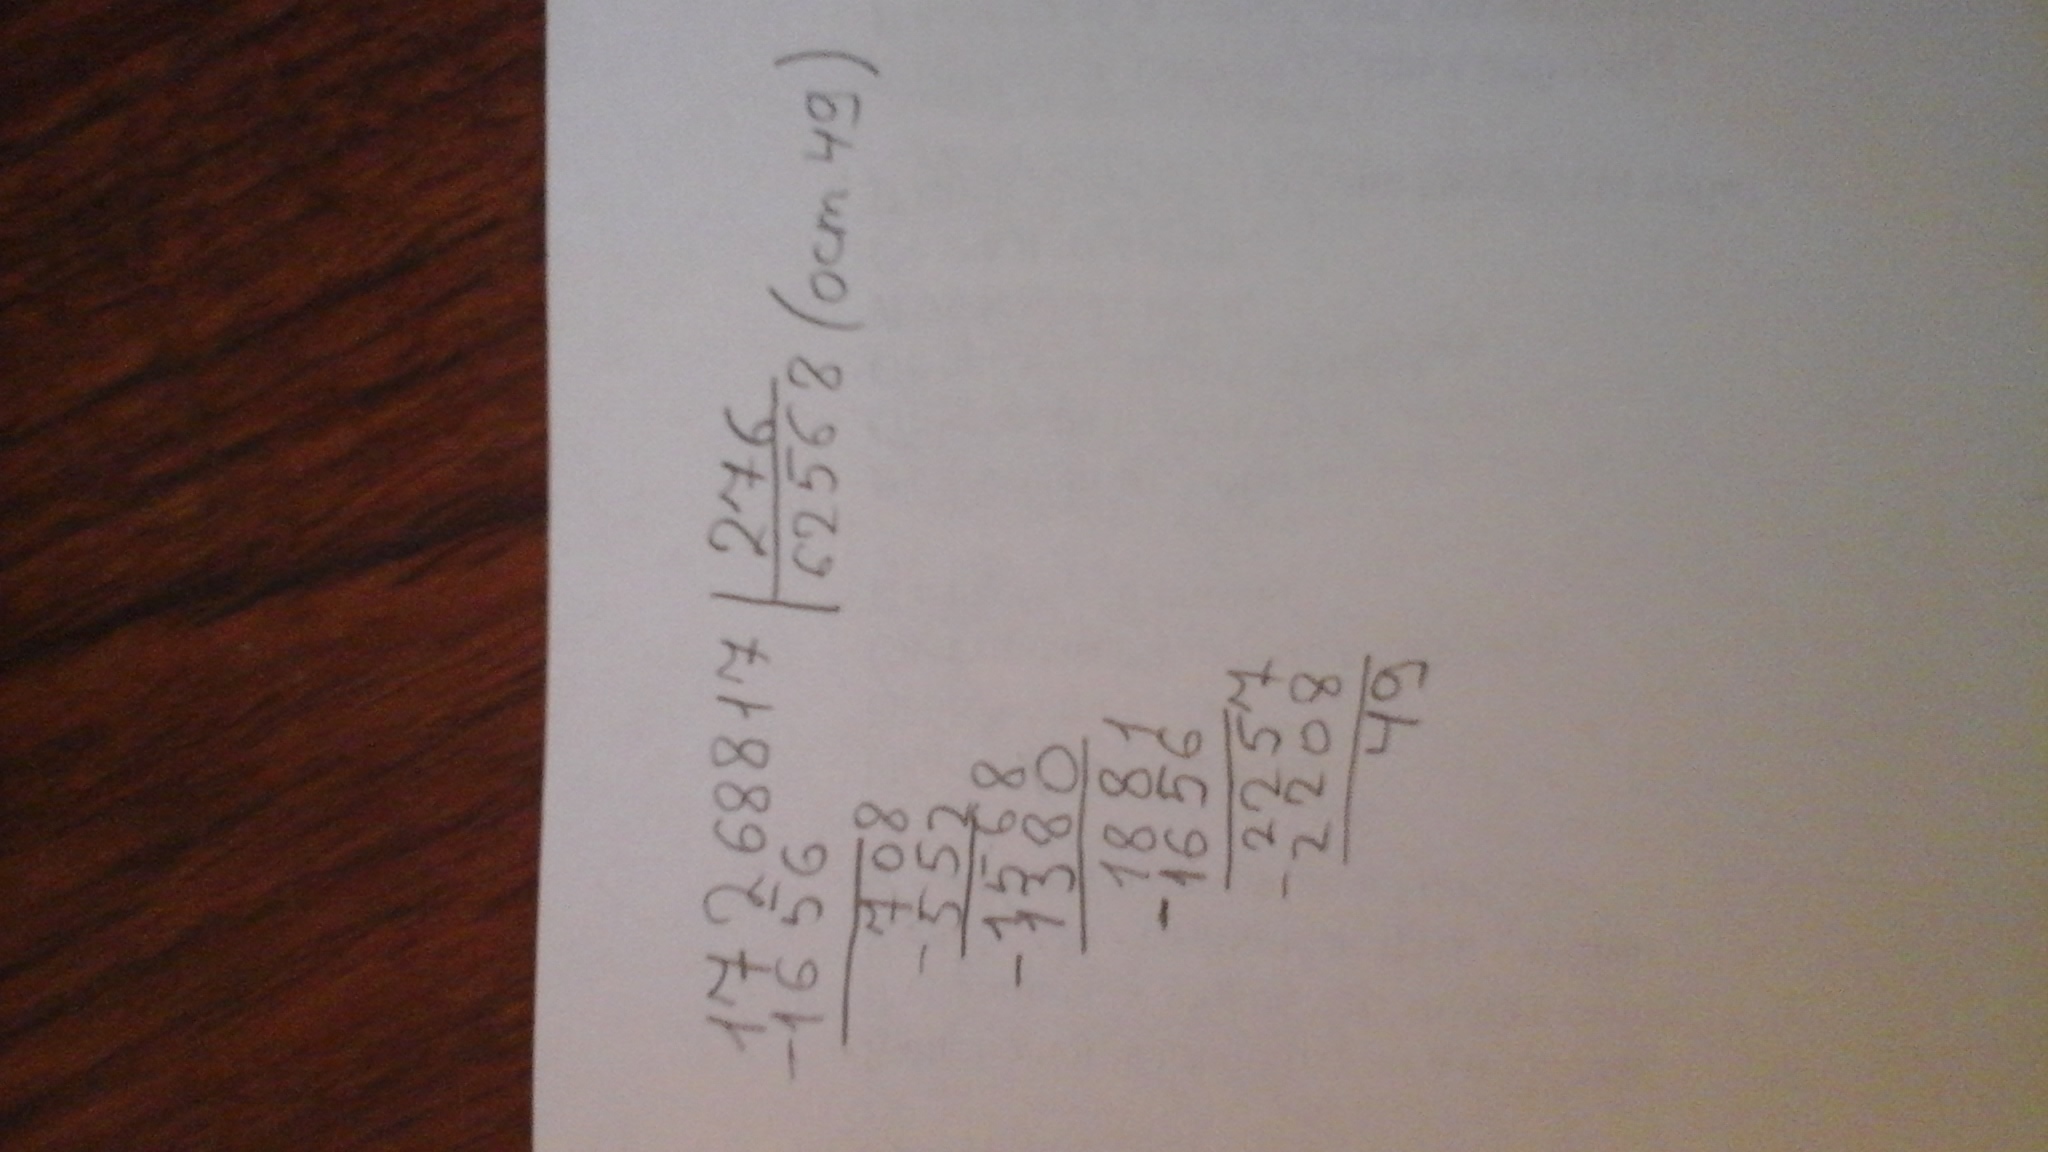 17268817 | 276
-1656 62568 (ост 49)
708
-552
1568
-1380
1881
-1656
2257
-2208
49